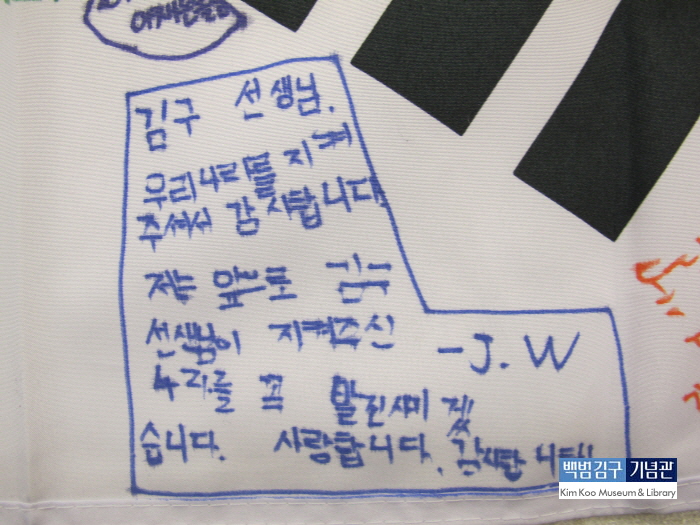 김구 선생님.
우리나라를 지켜
주셔서 감사합니다
저는 앞으로 김구
선생님이 지켜주신
우리를 꼭
습니다. 사랑합니다. 감사합니다!!
-J.W
백범김구 기념관
Kim Koo Museum & Library